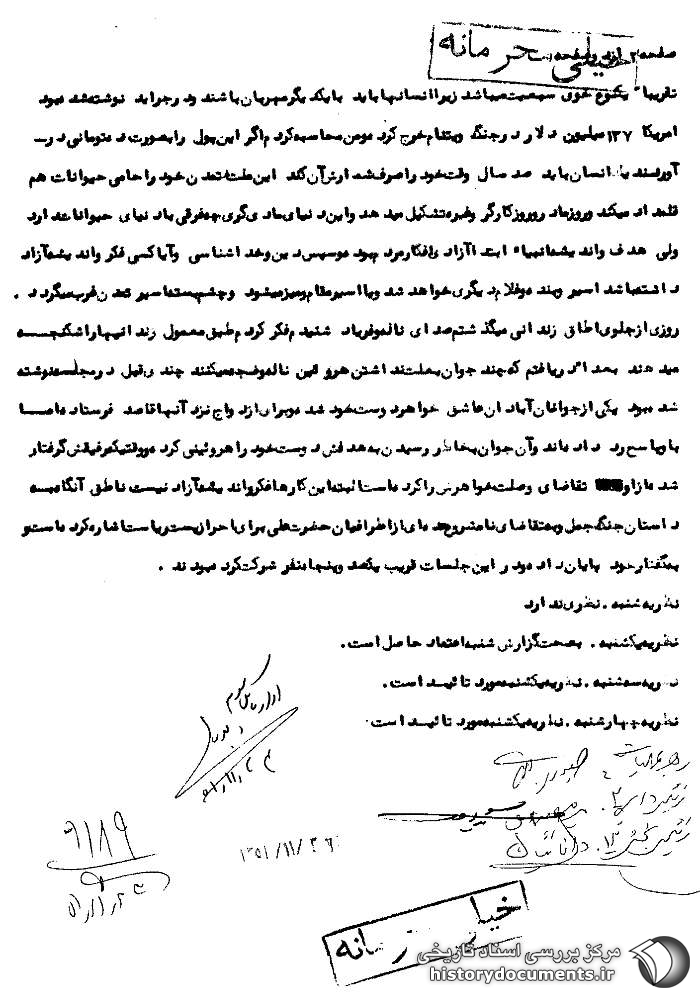 صفحه ۲ از
خیلی حرمانه
تقریبا یکنوع خوی سبعیت میباشد زیرا انسانها باید با یکدیگر مهربان باشند و در جراید نوشته شده بود
امریکا ۱۳۷ میلیون دلار در جنگ ویتنام خرج کرد و من محاسبه کردم اگر این پول را بصورت ده تومانی در
آورند یک انسان باید صد سال وقت خود را صرف شمارش آن کند این ملت متمدن خود را حامی حیوانات هم
قلمداد میکند و روز مادر و روز کارگر و غیره تشکیل میدهد و این دنیای مادیگری چه فرقی با دنیای حیوانات دارد
ولی هدف و اندیشه انبیاء ابتدا آزادی افکار مردم بود و سپس دین و خداشناسی و آیا کسی فکر و اندیشه آزاد
داشته باشد اسیر و بنده و غلام دیگری خواهد شد و یا اسیر مقام و میز میشود و چشم بسته اسیر تمدن غرب میگردد .
روزی از جلوی اطاق زندانی میگذشتم صدای ناله و فریاد شنیدم فکر کردم طبق معمول زندانیها را شکنجه
میدهند بعدا دریافتم که چند جوان بعلت نداشتن هروئین ناله و ضجه میکنند چندی قبل در مجله نوشته
شده بود یکی از جوانان آبادان عاشق خواهر دوست خود شده و برای ازدواج نزد آنها قاصد فرستاده اما
با پاسخ رد داده اند و آن جوان بخاطر رسیدن به هدفش دوست خود را هروئینی کرده و وقتیکه رفیقش گرفتار
شده از او تقاضای وصلت خواهرش را کرده است البته این کارها فکر و اندیشه آزاد نیست ناطق آنگاه به
داستان جنگ جمل و تقاضای نامشروع عده ای از اطرافیان حضرت علی برای احراز پست ریاست اشاره کرده است و
بگفتار خود پایان داد و در این جلسات قریب یکصد و پنجاه نفر شرکت کرده بودند .
نظریه شنبه . نظری ندارد
نظریه یکشنبه . بصحت گزارش شنبه اعتماد حاصل است .
نظریه سه شنبه . نظریه یکشنبه مورد تائید است .
نظریه چهارشنبه . نظریه یکشنبه مورد تائید است
اداره کل سوم
رهبر عملیات
۹۱۸۹
۱۳۵۱/۱۱/۲۶
مرکز بررسی اسناد تاریخی
historydocuments.ir